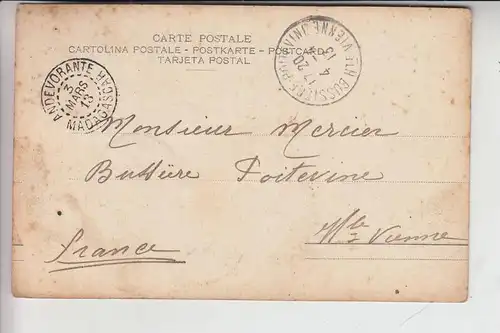 CARTE POSTALE
CARTOLINA POSTALE - POSTKARTE - POSTCARD
TARJETA POSTAL
ANDEVORANTE
3
MARS
13
MADAGASCAR
BUSSIÈRE-POITEVINE
Monsieur Mercier
Bussière Poitevine
Hte Vienne
France